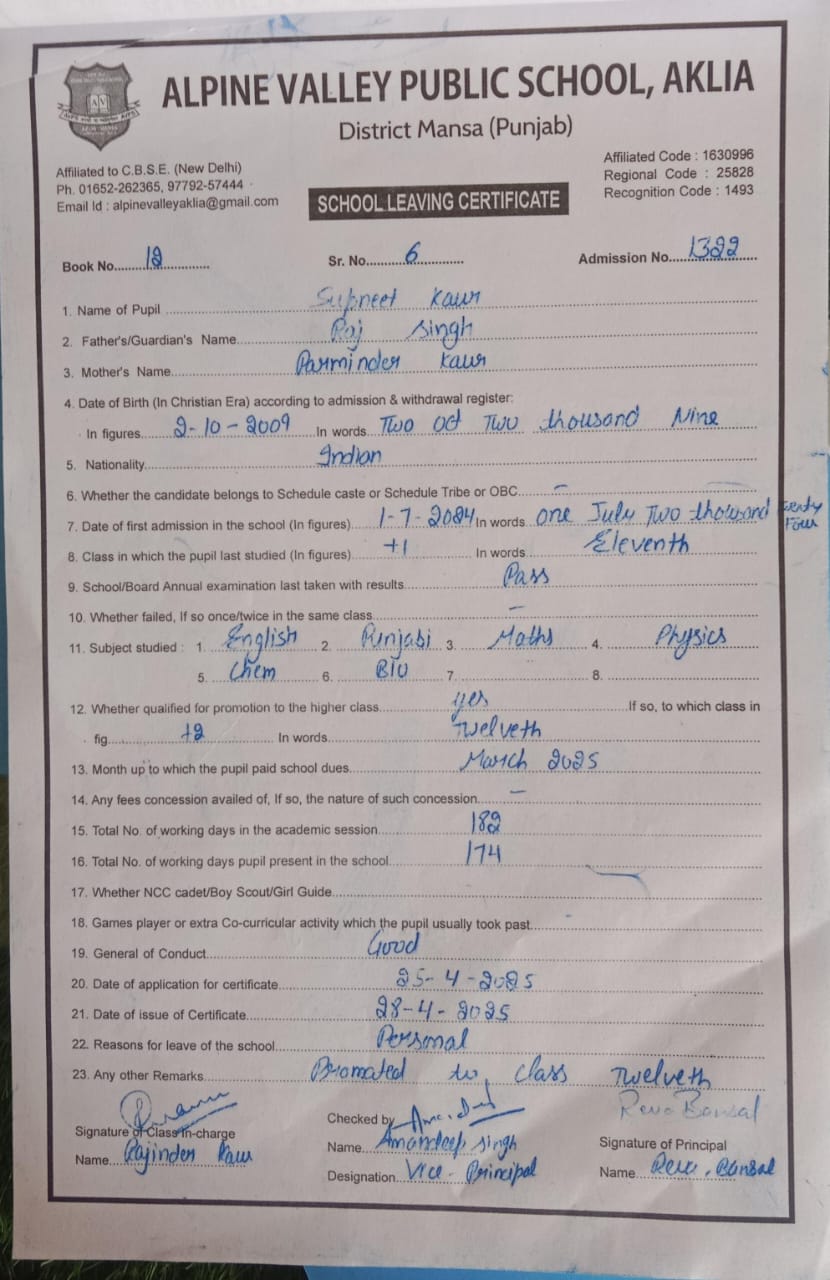 ALPINE VALLEY PUBLIC SCHOOL, AKLIA
District Mansa (Punjab)
Affiliated to C.B.S.E. (New Delhi)
Ph. 01652-262365, 97792-57444
Email Id : alpinevalleyaklia@gmail.com
Affiliated Code : 1630996
Regional Code : 25828
Recognition Code : 1493
SCHOOL LEAVING CERTIFICATE
Book No. 12 Sr. No. 6 Admission No. 1322
1. Name of Pupil Supneet Kaur
2. Father's/Guardian's Name Raj Singh
3. Mother's Name Parminder Kaur
4. Date of Birth (In Christian Era) according to admission & withdrawal register:
In figures 2-10-2009 In words Two oct Two thousand Nine
5. Nationality Indian
6. Whether the candidate belongs to Schedule caste or Schedule Tribe or OBC. –
7. Date of first admission in the school (In figures) 1-7-2024 In words one July Two thousand Twenty Four
8. Class in which the pupil last studied (In figures) +1 In words Eleventh
9. School/Board Annual examination last taken with results Pass
10. Whether failed, If so once/twice in the same class –
11. Subject studied : 1. English 2. Punjabi 3. Maths 4. Physics
5. Chem 6. BIO 7. 8.
12. Whether qualified for promotion to the higher class yes If so, to which class in
fig. +2 In words Twelveth
13. Month up to which the pupil paid school dues March 2025
14. Any fees concession availed of, If so, the nature of such concession –
15. Total No. of working days in the academic session 182
16. Total No. of working days pupil present in the school 174
17. Whether NCC cadet/Boy Scout/Girl Guide
18. Games player or extra Co-curricular activity which the pupil usually took past. -
19. General of Conduct Good
20. Date of application for certificate 25-4-2025
21. Date of issue of Certificate 28-4-2025
22. Reasons for leave of the school Personal
23. Any other Remarks Promated to class Twelveth
Signature of Class In-charge
Name Rajinder Kaur
Checked by
Name Amandeep Singh
Designation Vice-Principal
Reva Bansal
Signature of Principal
Name Reva Bansal